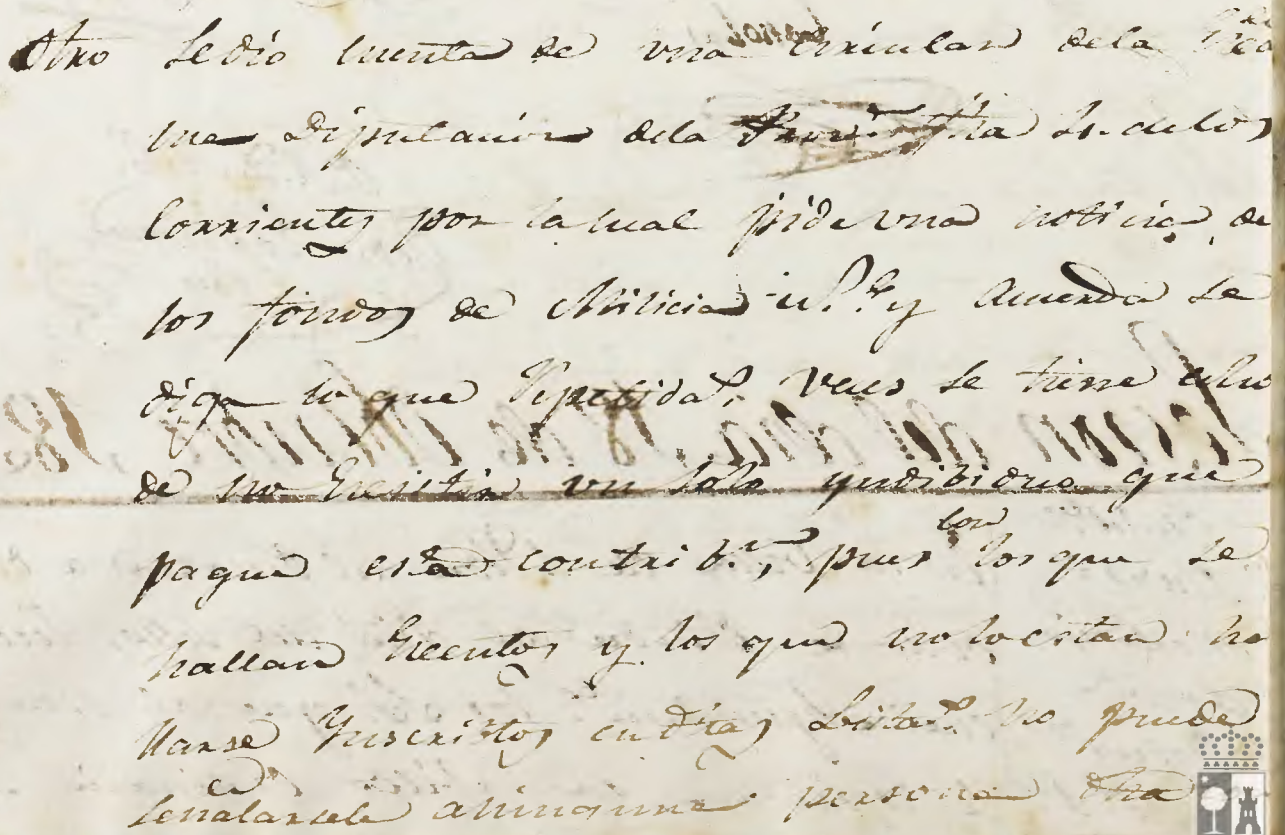 Otro Se dio cuenta de una circular de la
me Diputacion de la Prov.ª fha de los
Corrientes por la cual pide una noticia de
los fondos de Milicia N.l y Acuerda Se
diga lo que Repetida.s veces se tiene
de no Ecsistir un solo yndibiduo que
pague esta contrib.n, pues con los que se
hallan Ecentos y los que no lo estan ha
llarse Ynscriptos en dhas Listas no puede
señalarsele a ninguna persona dha